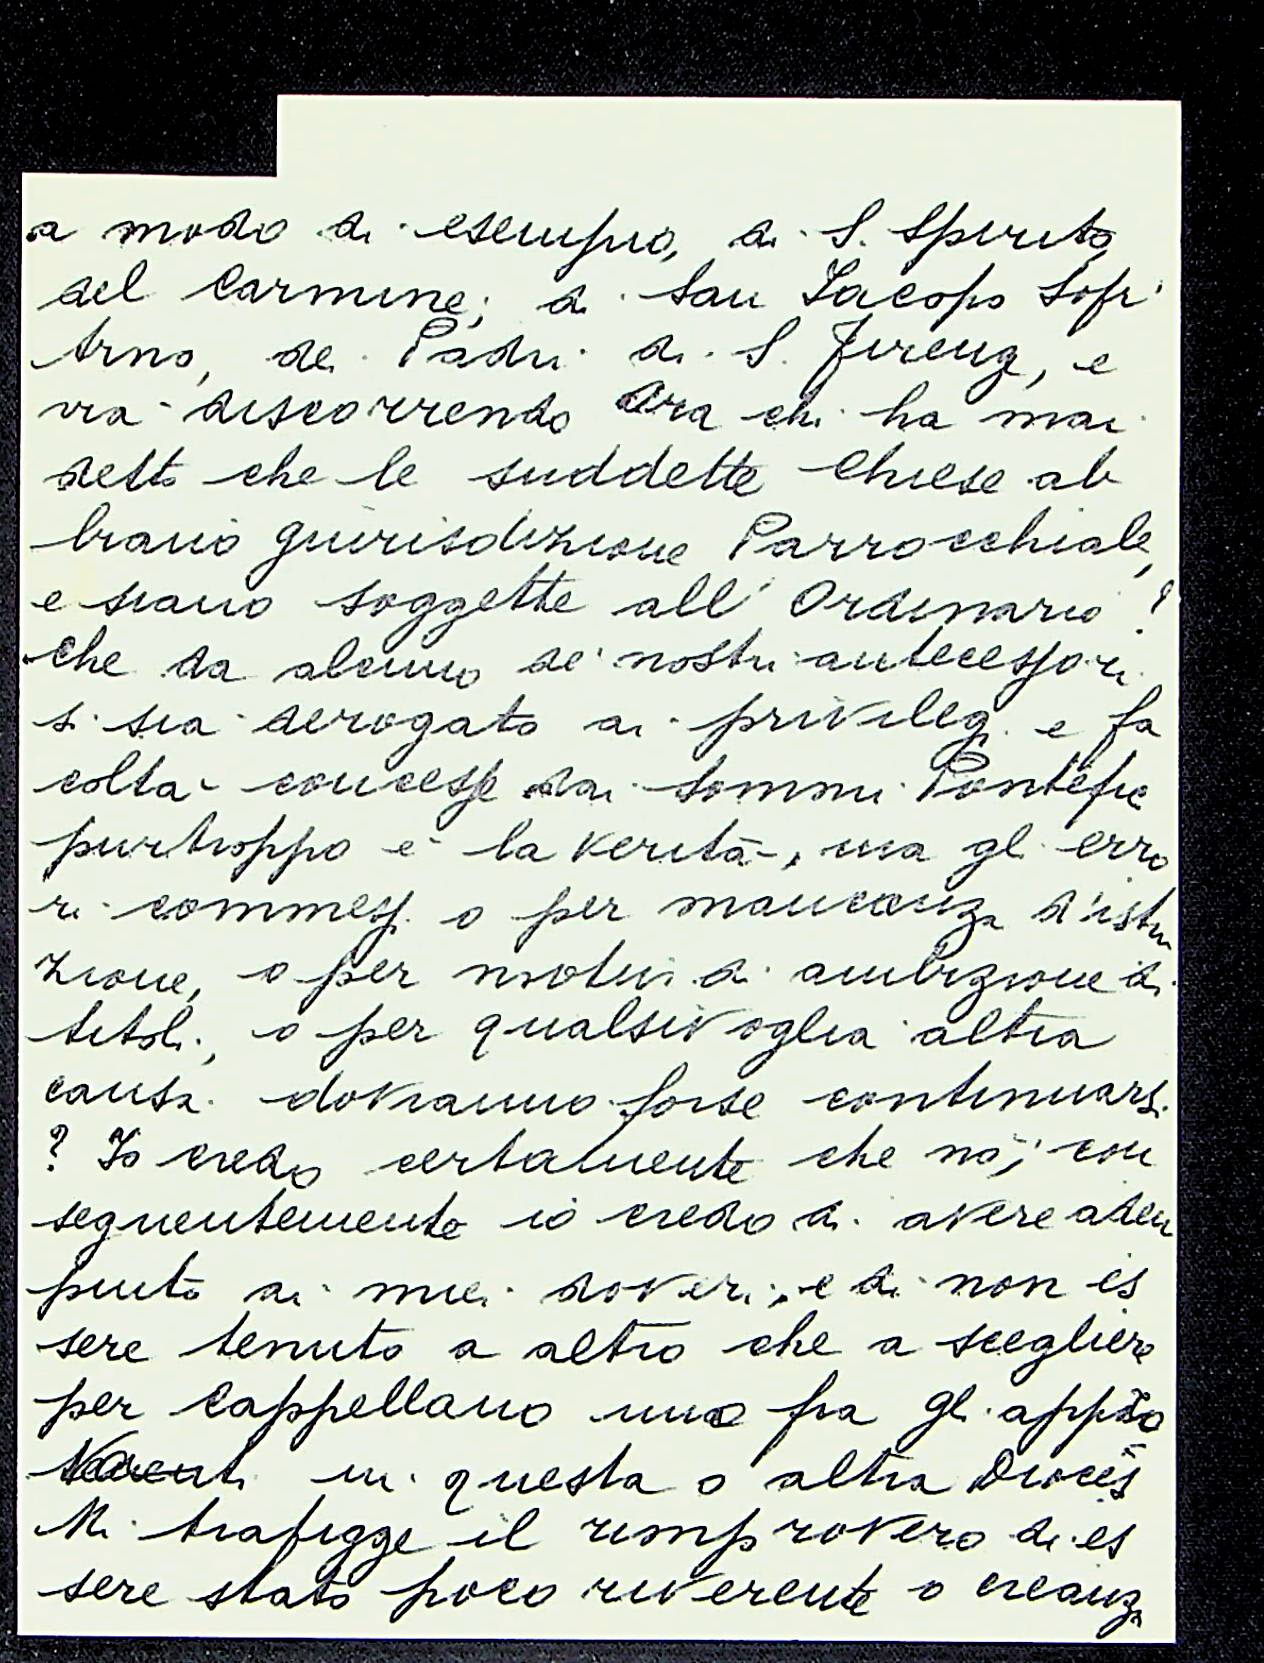 a modo di esempio, di S. Spirito
del Carmine; di San Iacopo Sopr'
Arno, dei Padri di S. Firenze, e
via discorrendo Ora chi ha mai
detto che le suddette Chiese ab
biano giurisdizione Parrocchiale,
e siano soggette all' Ordinario?
Che da alcuno de' nostri antecessori
si sia derogato ai privilegi e fa
coltà concesse dai sommi Pontefici
purtroppo è la verità, ma gli erro
ri commessi o per mancanza d'istru
zione, o per motivi di ambizione di
titoli, o per qualsivoglia altra
causa dovranno forse continuarsi
? Io credo certamente che nò; con
seguentemente io credo di avere adem
piuto ai miei doveri, e di non es
sere tenuto a altro che a scegliere
per Cappellano uno fra gli appro
vati in questa o altra Diocesi
Mi trafigge il rimprovero di es
sere stato poco riverente o creanza